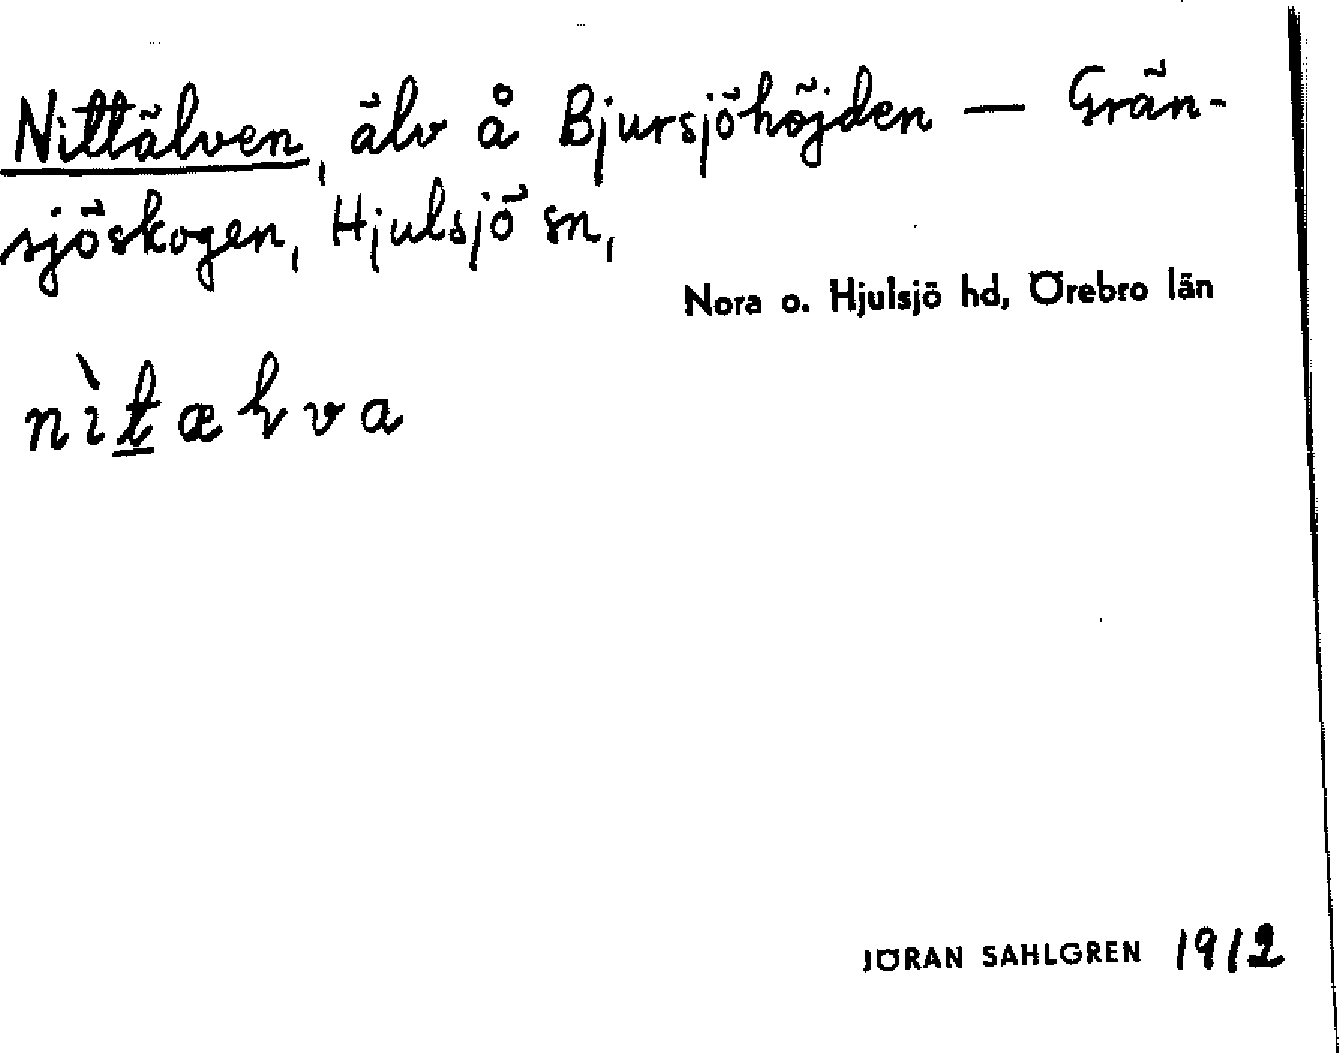 Nittälven, älv å Bjursjöhöjden — Grän-
sjöskogen, Hjulsjö sn,
Nora o. Hjulsjö hd, Örebro län
JÖRAN SAHLGREN 1912